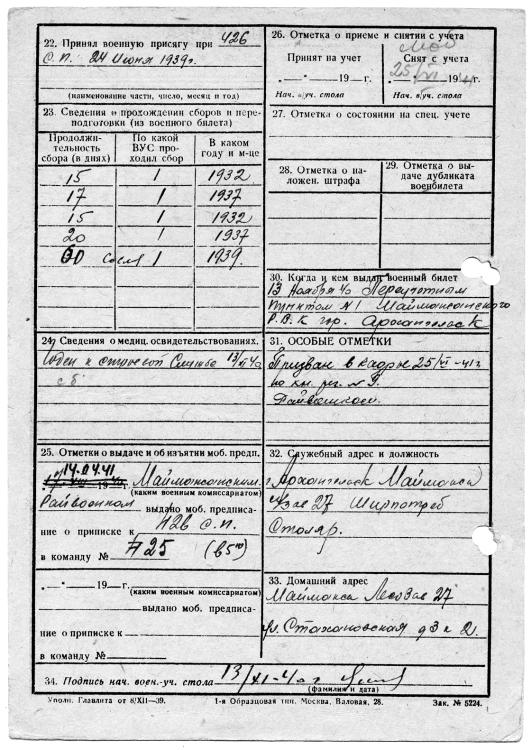 22. Принял военную присягу при 426
с. п. 24 Июня 1939 г.
(наименование части, число, месяц и год)
23. Сведения о прохождении сборов и переподготовки (из военного билета)
Продолжительность сбора (в днях) По какой ВУС проходил сбор В каком году и м-це
15 1 1932
17 1 1937
15 1 1932
20 1 1937
60 1 1939.
24. Сведения о медиц. освидетельствованиях.
Годен к строевой Службе 13/XI 40
25. Отметки о выдаче и об изъятии моб. предп.
14.04.41 Маймаксанским
(каким военным комиссариатом)
Райвоенком выдано моб. предписание о приписке к 426 с. п.
в команду № 725
„ “ 19 г.
(каким военным комиссариатом)
выдано моб. предписание о приписке к
в команду №
26. Отметка о приеме и снятии с учета
Моб
Принят на учет Снят с учета
„ “ 19 г. 25/VI 1941 г.
Нач. в/уч. стола Нач. в/уч. стола
27. Отметка о состоянии на спец. учете
28. Отметка о наложен. штрафа
29. Отметка о выдаче дубликата военбилета
30. Когда и кем выдан военный билет
13 Ноября 40 Переучетным
пунктом №1 Маймаксанского
Р.В.К гор. Архангельск
31. ОСОБЫЕ ОТМЕТКИ
Призван в кадры 25/VI-41г
по кн. рег. №
Райвоенком.
32. Служебный адрес и должность
г. Архангельск Маймакса
27 Ширпотреб
Столяр.
33. Домашний адрес
Маймакса Лесозав 27
ул. Стахановская д 3 к 2.
34. Подпись нач. воен.-уч. стола 13/XI-40 г
(фамилия и дата)
Уполн. Главлита от 8/XII—39. 1-я Образцовая тип. Москва, Валовая, 28. Зак. № 5224.